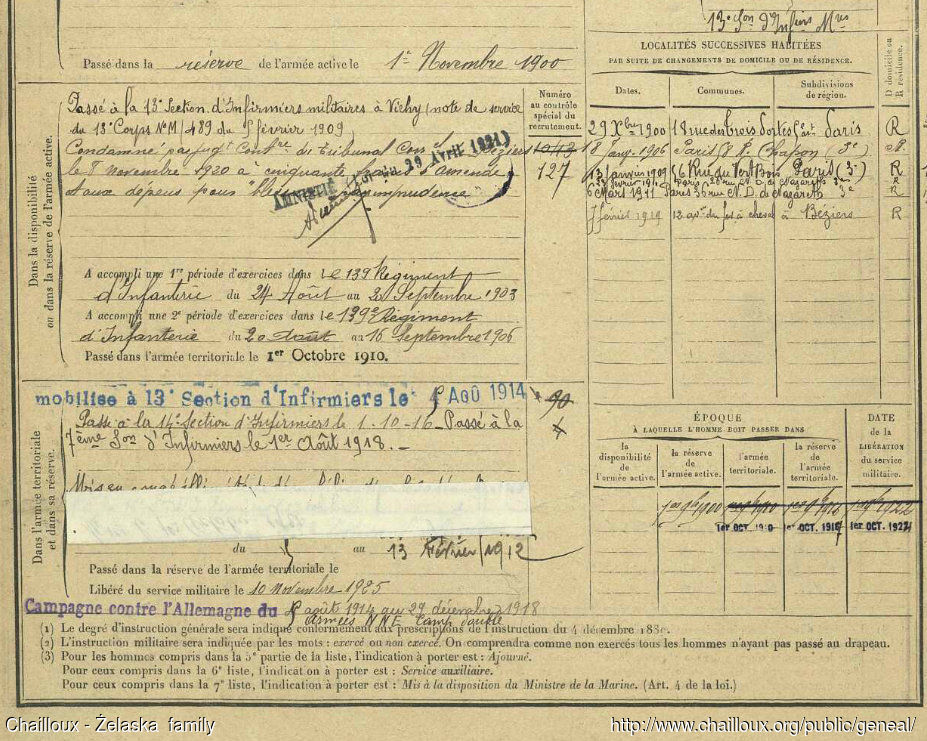 13e Son d'Infirs Mres
Passé dans la réserve de l'armée active le 1er Novembre 1900
Dans la disponibilité
ou dans la réserve de l'armée active.
Passé à la 13e Section d'Infirmiers militaires à Vichy (note de service
du 13e Corps No M/489 du février 1909)
Condamné par jugt Contre du Tribunal Béziers
le novembre 1920 à cinquante d'amende
et aux dépens pour imprudence
AMNISTIÉ 29 Avril 1921)
A accompli une 1re période d'exercices dans le 139e Régiment
d'Infanterie du 24 Août au 2 Septembre 1903
A accompli une 2e période d'exercices dans le 139e Régiment
d'Infanterie du 20 août au 16 Septembre 1906
Passé dans l'armée territoriale le 1er Octobre 1910.
Numéro
au contrôle
spécial du
recrutement.
1043
127
90
LOCALITÉS SUCCESSIVES HABITÉES
PAR SUITE DE CHANGEMENTS DE DOMICILE OU DE RÉSIDENCE.
D domicile ou
R résidence.
Dates. Communes. Subdivisions
de région.
29 Xbre 1900 18 rue des Trois Paris R
18 Janv. 1906 Paris R. Chapon (3e)
13 janvier 1909 Rue du Vert Bois Paris (3e) R
R
6 Mars 1911 Paris rue N. D. de Nazareth 3e R
février 1919 à Béziers R
Dans l'armée territoriale
et dans sa réserve.
mobilisé à 13e Section d'Infirmiers le Aoû 1914
Passé à la 14e Section d'Infirmiers le 1-10-16. Passé à la
7ème Son d'Infirmiers le 1er Août 1918.-
du au 13 Février 1912
Passé dans la réserve de l'armée territoriale le
Libéré du service militaire le 10 novembre 1925
Campagne contre l'Allemagne du août 1914 au 29 décembre 1918
Armées N N E Camp. double
ÉPOQUE
À LAQUELLE L'HOMME DOIT PASSER DANS
DATE
de la
LIBÉRATION
du service
militaire.
la
disponibilité
de
l'armée active.
la réserve
de
l'armée active.
l'armée
territoriale.
la réserve
de
l'armée
territoriale.
1er 9bre 1900
1er OCT. 1910 1er OCT. 1916 1er OCT. 1922
(1) Le degré d'instruction générale sera indiqué conformément aux prescriptions de l'instruction du 4 décembre
(2) L'instruction militaire sera indiquée par les mots : exercé ou non exercé. On comprendra comme non exercés tous les hommes n'ayant pas passé au drapeau.
(3) Pour les hommes compris dans la 5e partie de la liste, l'indication à porter est : Ajourné.
Pour ceux compris dans la 6e liste, l'indication à porter est : Service auxiliaire.
Pour ceux compris dans la 7e liste, l'indication à porter est : Mis à la disposition du Ministre de la Marine. (Art. 4 de la loi.)
Chailloux - Żelaska family
http://www.chailloux.org/public/geneal/